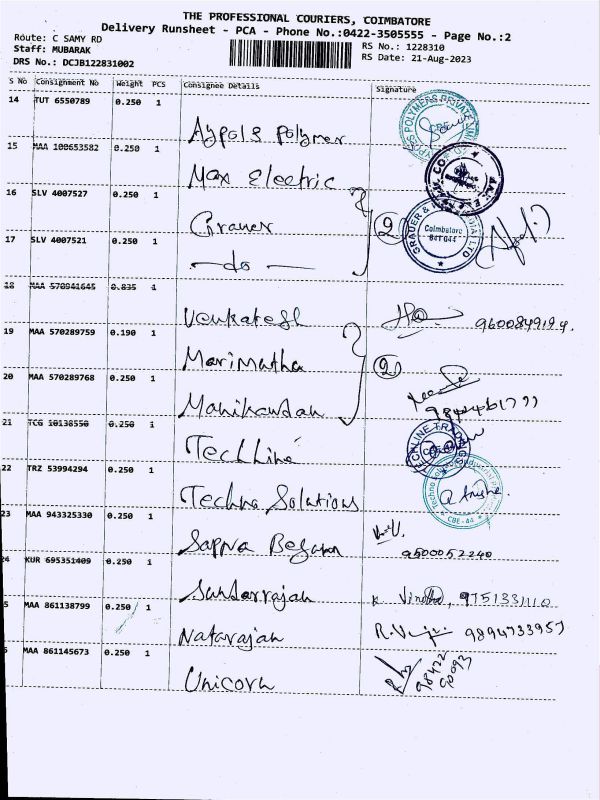 THE PROFESSIONAL COURIERS, COIMBATORE
Delivery Runsheet - PCA - Phone No.:0422-3505555 - Page No.:2
Route: C SAMY RD
RS No.: 1228310
Staff: MUBARAK
RS Date: 21-Aug-2023
DRS No.: DCJB122831002
S No Consignment No Weight PCS Consignee Details Signature
14 TUT 6550789 0.250 1
15 MAA 100653582 0.250 1
Max Electric
16 SLV 4007527 0.250 1
Grauer 2
Coimbatore
641 044
17 SLV 4007521 0.250 1
— do —
18 MAA 570941645 0.835 1
Venkatesh 9600849194.
19 MAA 570289759 0.190 1
Marimutha 2
20 MAA 570289768 0.250 1
Manikandan
21 TCG 10138550 0.250 1
Techline
22 TRZ 53994294 0.250 1
Techno Solutions
CBE-44
23 MAA 943325330 0.250 1
9500052240
24 KUR 695351409 0.250 1
Sundarrajan 9751331110
5 MAA 861138799 0.250 1
Natarajan 9894733957
MAA 861145673 0.250 1
Unicorn 98422
90093